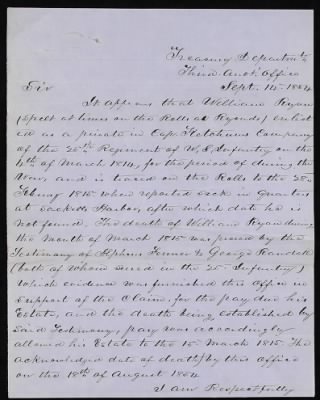 Treasury Department
Third Aud. Office
Sept. 14. 1854
Sir
It appears that William Ryan
(spelt at times on the Rolls as Ryonds) enlist
ed as a private in Cap. Ketchums Company
of the 25th Regiment of U. S. Infantry on the
4th of March 1814, for the period of during the
War, and is traced on the Rolls to the 28th
Feb'ry 1815 when reported sick in Quarters
at Sacketts Harbor, after which date he is
not found. The death of William Ryan during
the Month of March 1815 was proved by the
Testimony of Stephens Fenner & George
(both of whom served in the 25th Infantry)
which evidence was furnished this office in
support of the Claim for the pay due his
Estate, and the death being established by
said Testimony, pay was accordingly
allowed his Estate to the 15th March 1815. The
acknowledged date of death by this office
on the 18th of August 1854
I am Respectfully